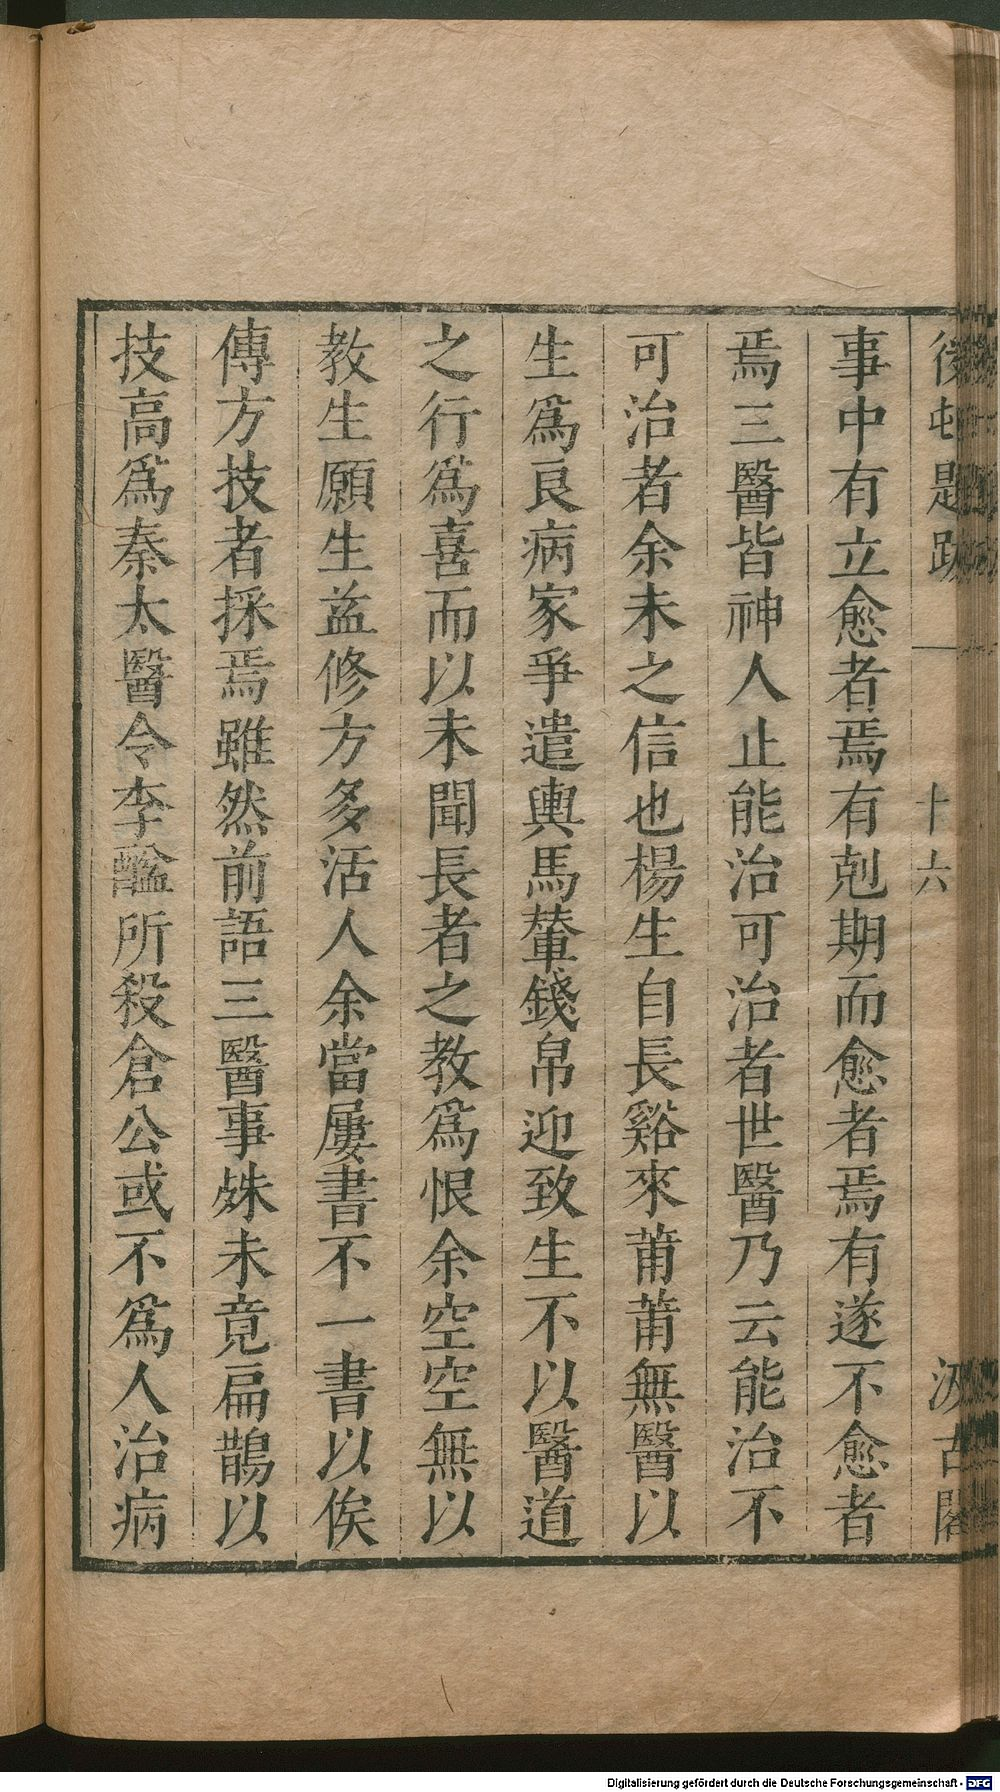 後屯題跋 一 十六 汲古閣
事中有立愈者焉有剋期而愈者焉有遂不愈者
焉三醫皆神人止能治可治者世醫乃云能治不
可治者余未之信也楊生自長谿來莆莆無醫以
生爲良病家爭遣輿馬輦錢帛迎致生不以醫道
之行爲喜而以未聞長者之教爲恨余空空無以
教生願生益修方多活人余當屢書不一書以俟
傳方技者採焉雖然前語三醫事殊未竟扁鵲以
技高爲秦太醫令李醯所殺倉公或不爲人治病
Digitalisierung gefördert durch die Deutsche Forschungsgemeinschaft - DFG